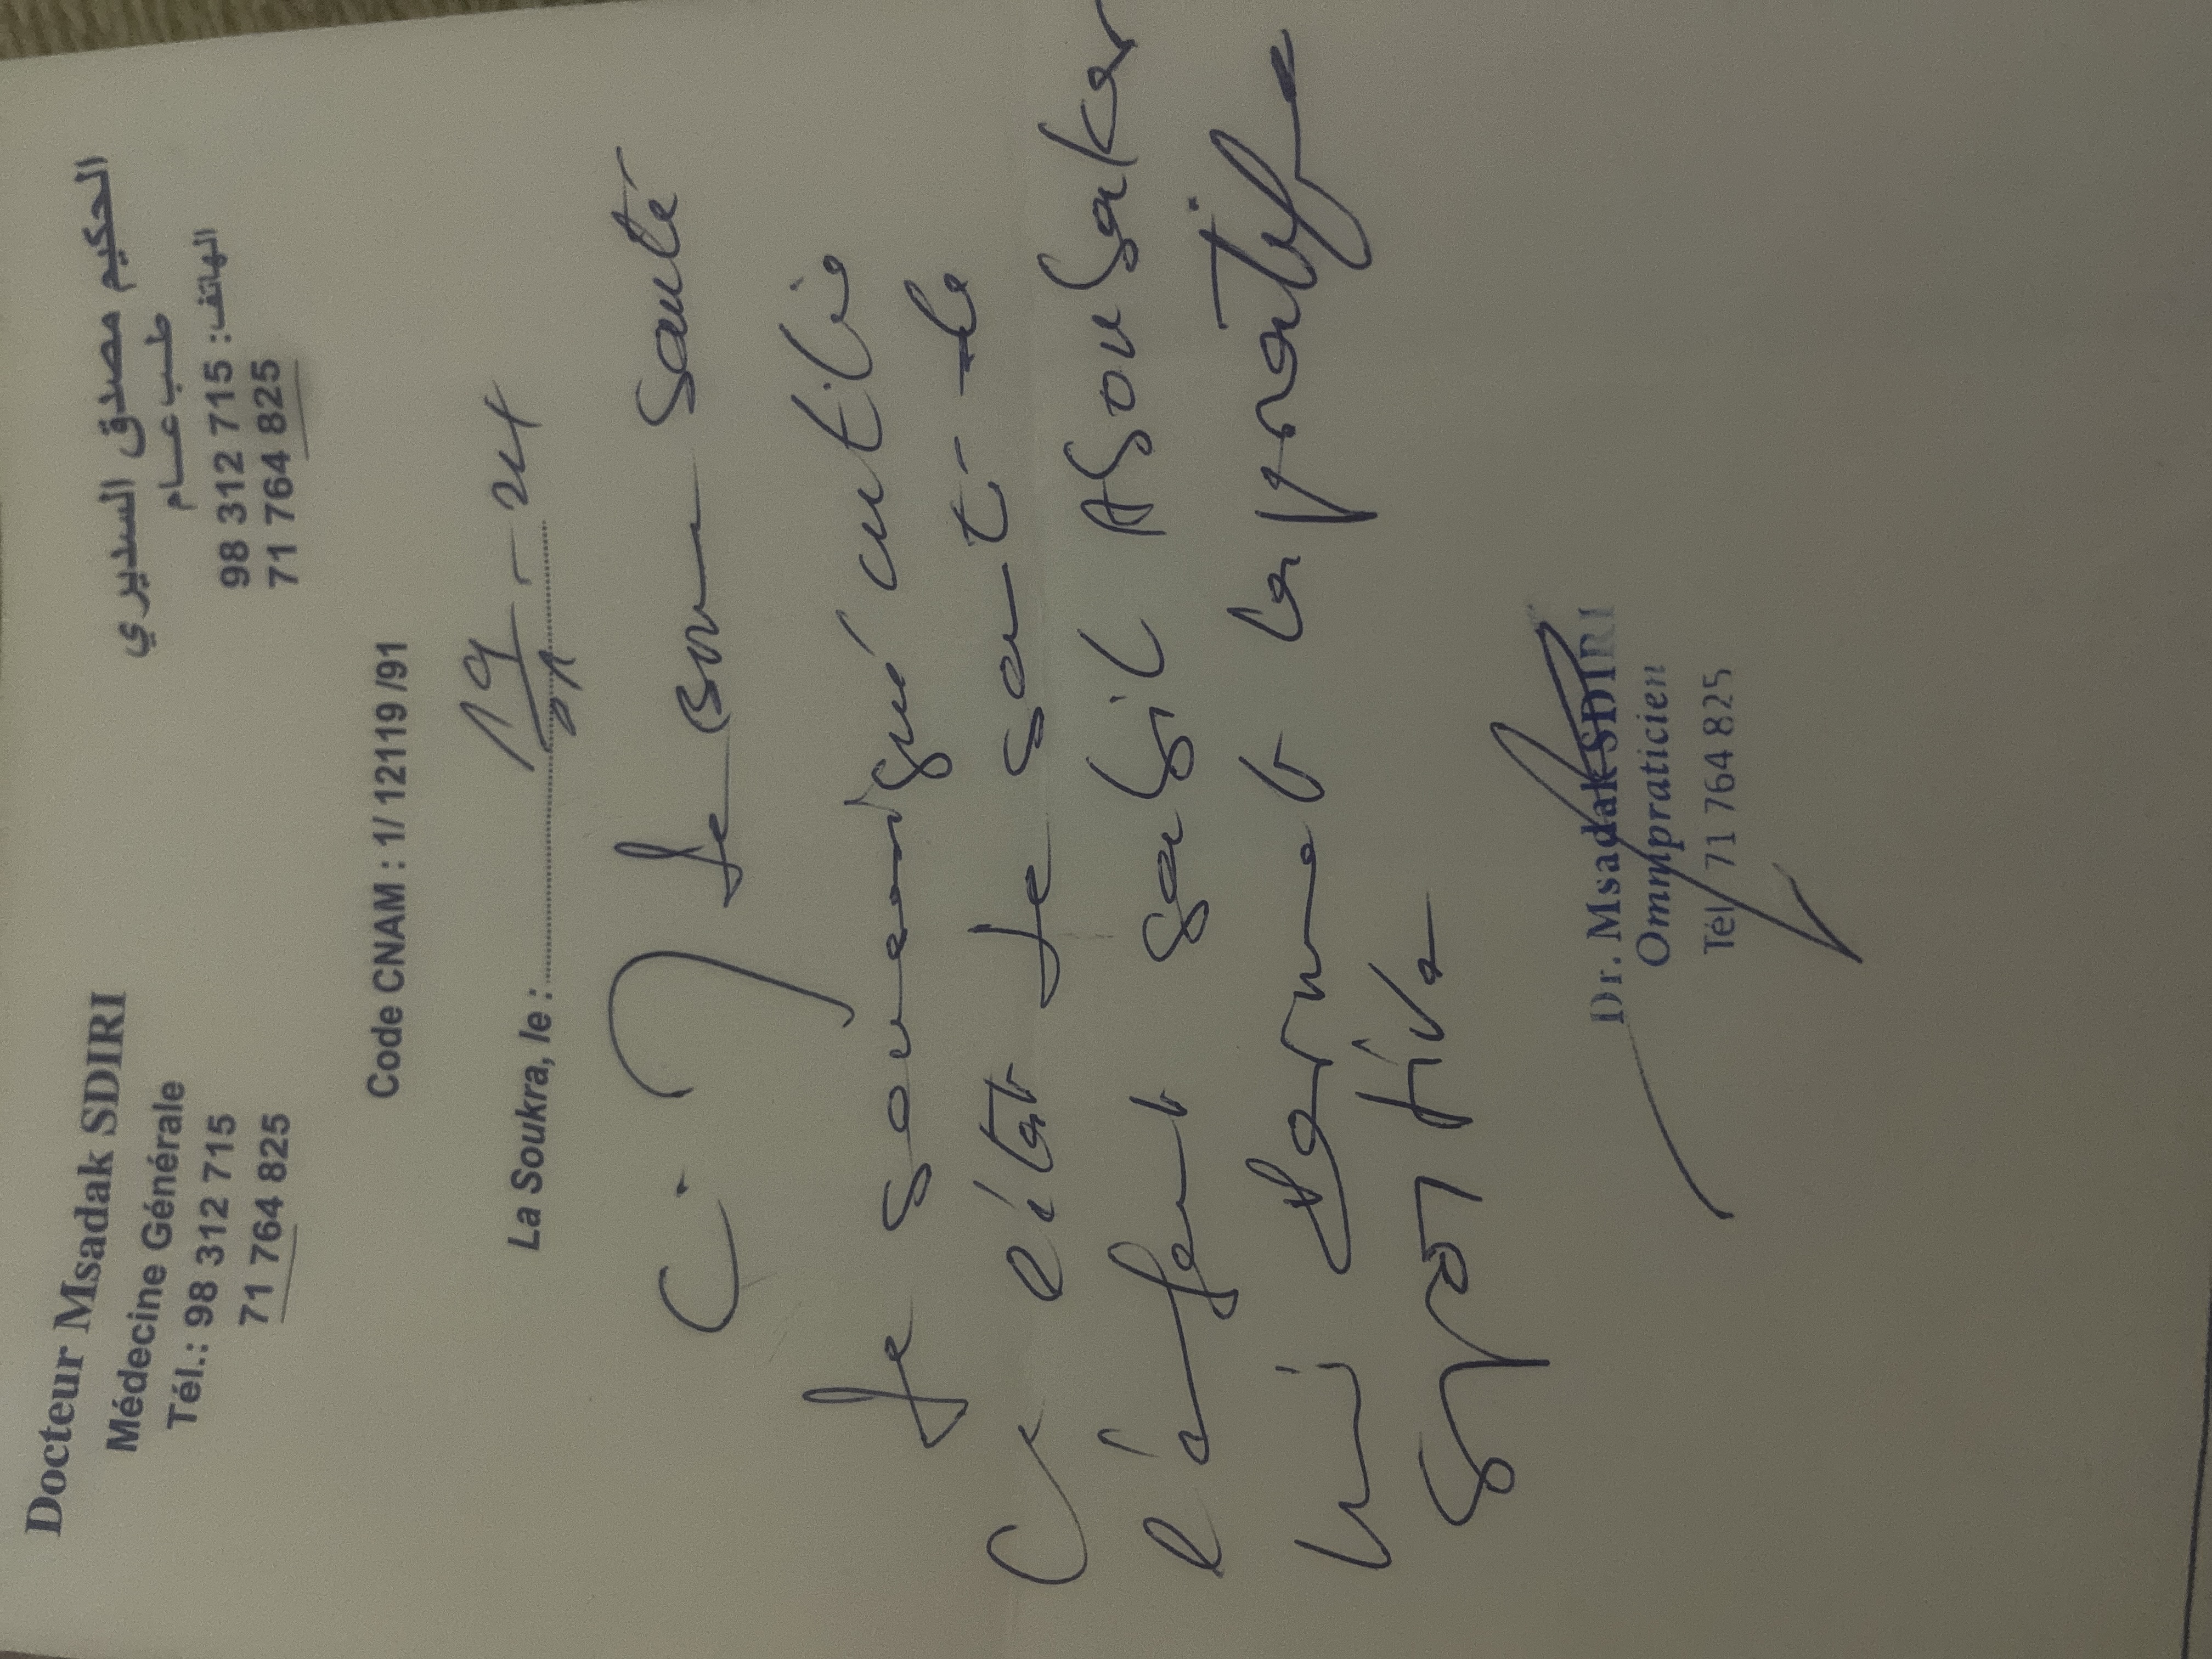 Docteur Msadak SDIRI
Médecine Générale
Tél.: 98 312 715
71 764 825
الحكيم مصدق السديري
طب عام
الهاتف: 98 312 715
71 764 825
Code CNAM : 1/ 12119 /91
La Soukra, le : 19 - 24
C. M de Bonne Santé
Je soussigné certifie
l'état de santé de
l'enfant Basil
lui permet la pratique
sportive
Dr. Msadak SDIRI
Omnipraticien
Tél 71 764 825